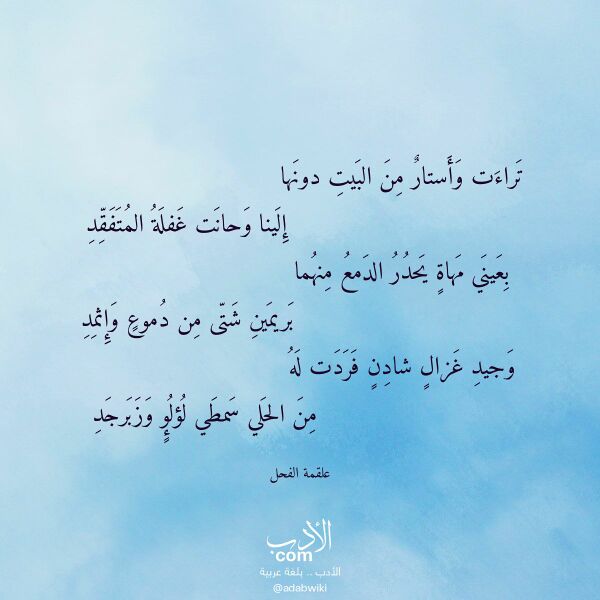 تَراءَت وَأَستارٌ مِنَ البَيتِ دونَها
إِلَينا وَحانَت غَفلَةُ المُتَفَقِّدِ
بِعَينَي مَهاةٍ يَحدُرُ الدَمعُ مِنهُما
بَريمَينِ شَتّى مِن دُموعٍ وَإِثمِدِ
وَجيدِ غَزالٍ شادِنٍ فَرَدَت لَهُ
مِنَ الحَلَي سَمطَي لُؤلُؤٍ وَزَبَرجَدِ
علقمة الفحل
الأدب
com
الأدب .. بلغة عربية
@adabwiki